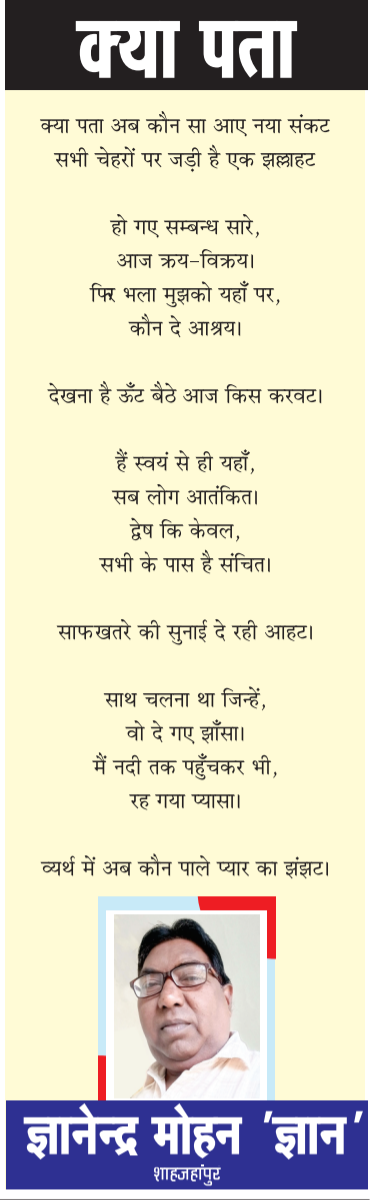 क्या पता
क्या पता अब कौन सा आए नया संकट
सभी चेहरों पर जड़ी है एक झल्लाहट
हो गए सम्बन्ध सारे,
आज क्रय-विक्रय।
फिर भला मुझको यहाँ पर,
कौन दे आश्रय।
देखना है ऊँट बैठे आज किस करवट।
हैं स्वयं से ही यहाँ,
सब लोग आतंकित।
द्वेष कि केवल,
सभी के पास है संचित।
साफखतरे की सुनाई दे रही आहट।
साथ चलना था जिन्हें,
वो दे गए झाँसा।
मैं नदी तक पहुँचकर भी,
रह गया प्यासा।
व्यर्थ में अब कौन पाले प्यार का झंझट।
ज्ञानेन्द्र मोहन 'ज्ञान'
शाहजहांपुर